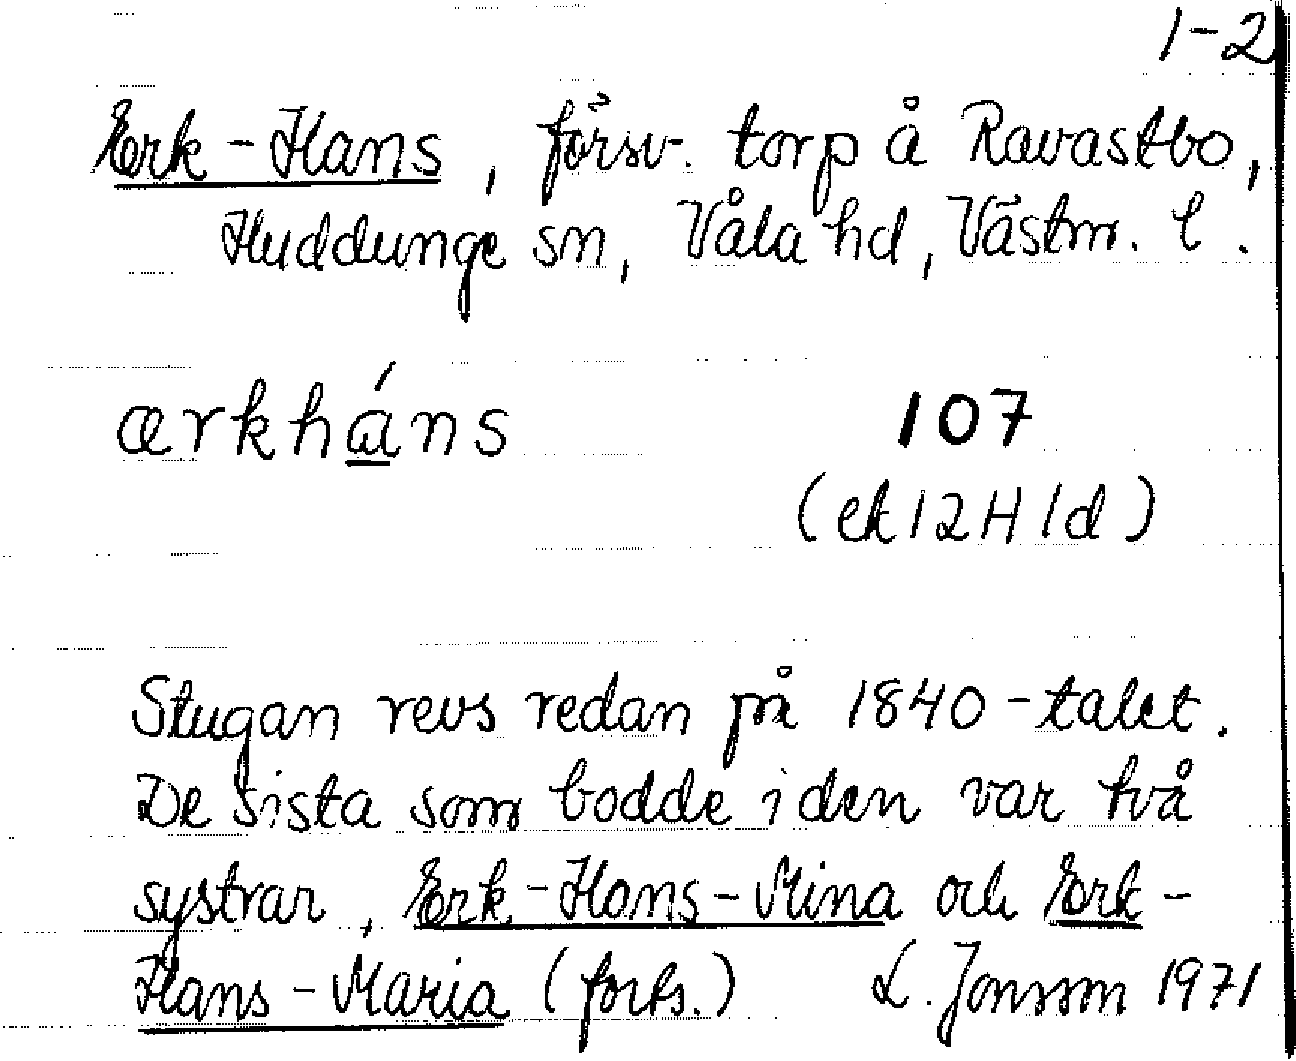 1-2
Erk-Hans, försv. torp å Ravastbo,
Huddunge sn, Våla hd, Västm. l.
ærkháns
107
(ek 12H 1d)
Stugan revs redan på 1840-talet.
De sista som bodde i den var två
systrar, Erk-Hans-Mina och Erk-
Hans-Maria (forts.) L. Jonsson 1971